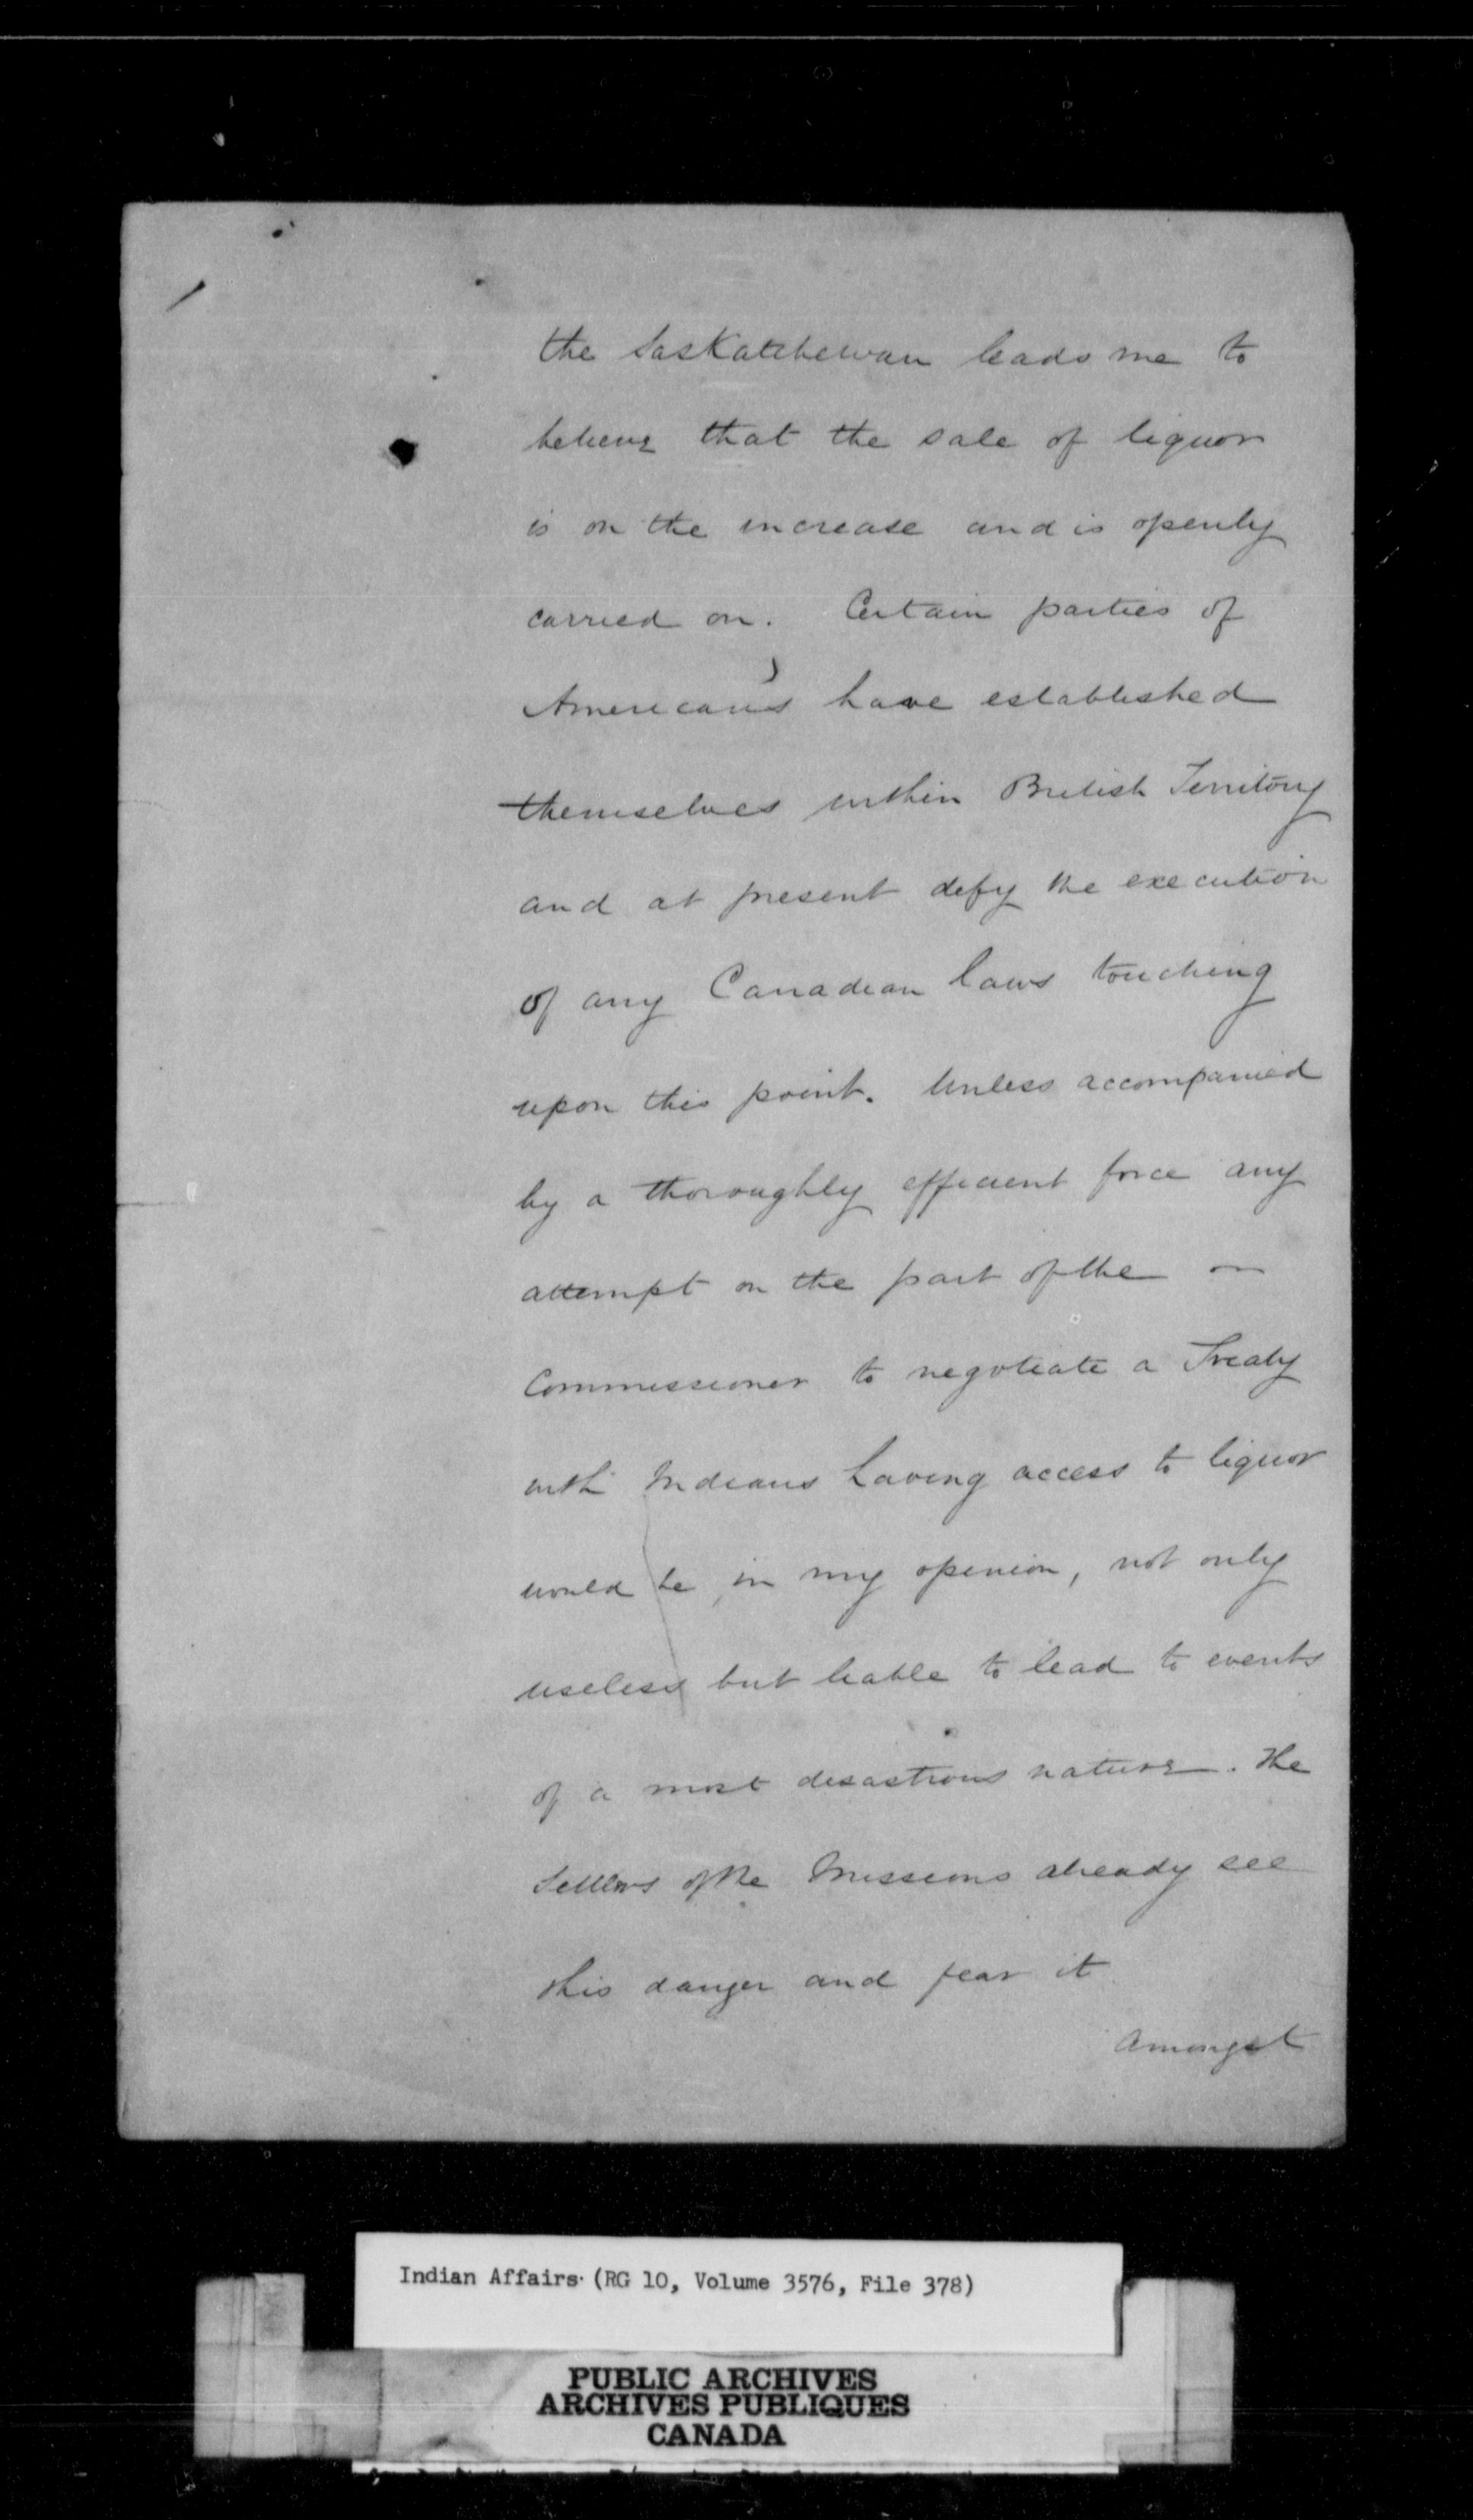 the Saskatchewan leads me to
believe that the sale of liquor
is on the increase and is openly
carried on. Certain parties of
Americans have established
themselves within British Territory
and at present defy the execution
of any Canadian laws touching
upon this point. Unless accompanied
by a thoroughly efficient force any
attempt on the part of the —
Commissioner to negotiate a Treaty
with Indians having access to liquor
would be, in my opinion, not only
useless but liable to lead to events
of a most desastrous nature. The
Settlers of the Missions already see
this danger and fear it
Amongst
Indian Affairs (RG 10, Volume 3576, File 378)
PUBLIC ARCHIVES
ARCHIVES PUBLIQUES
CANADA